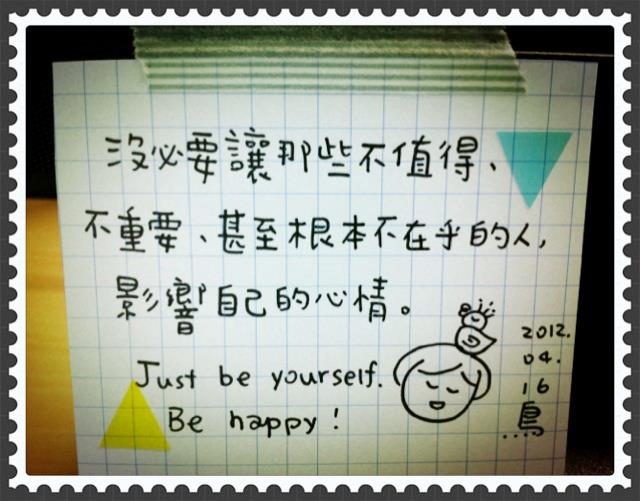 沒必要讓那些不值得、
不重要、甚至根本不在乎的人,
影響自己的心情。
Just be yourself.
Be happy!
2012.
04.
16
鳥